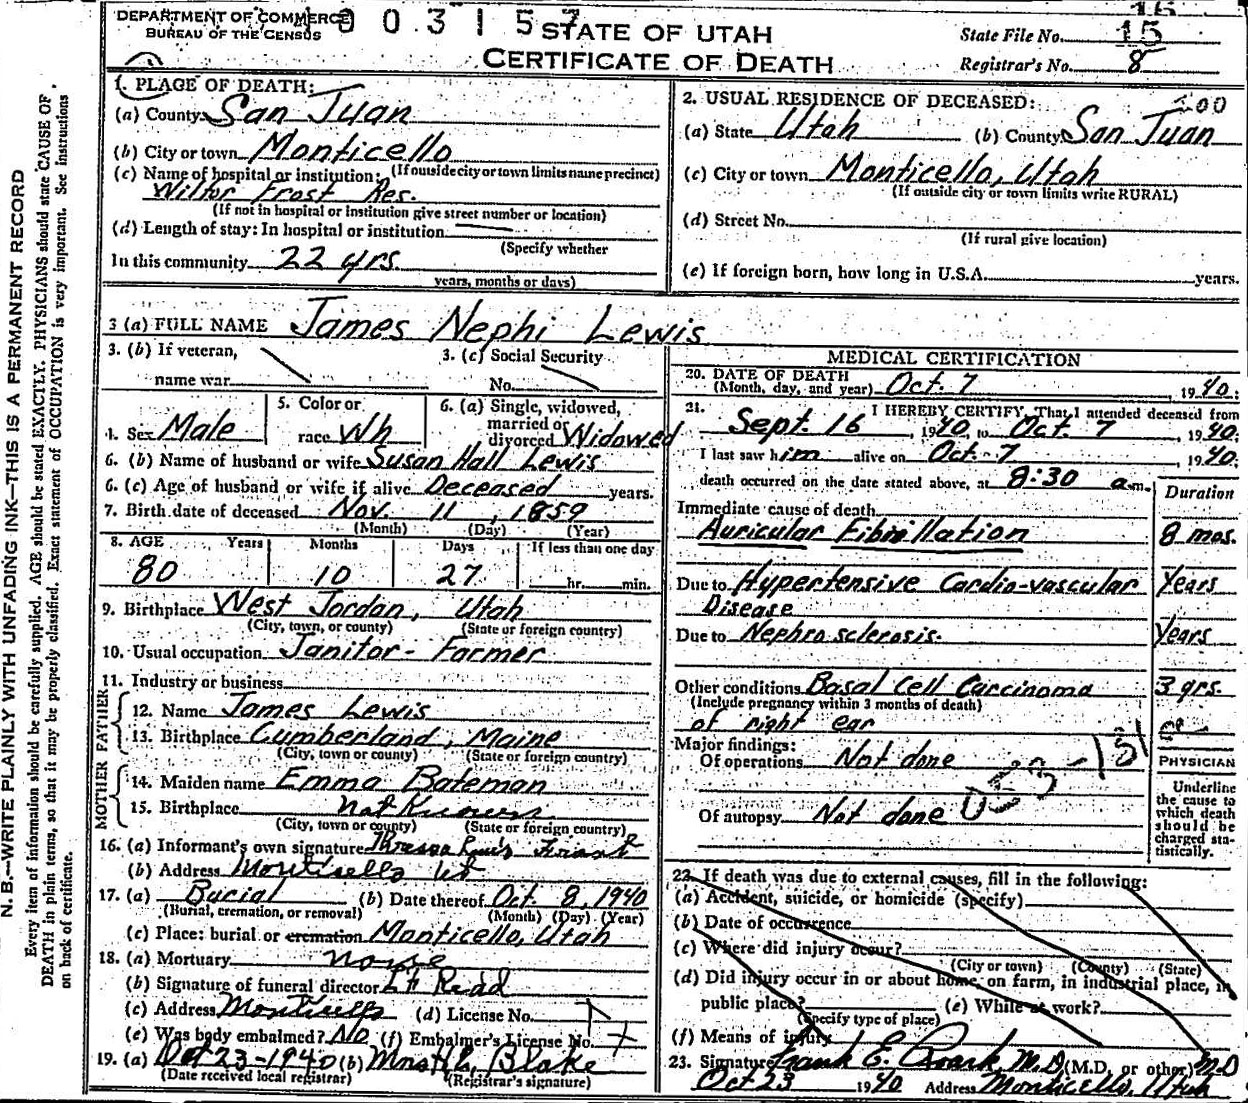 DEPARTMENT OF COMMERCE
BUREAU OF THE CENSUS
003157
STATE OF UTAH
CERTIFICATE OF DEATH
State File No. 15
Registrar's No. 8
1. PLACE OF DEATH:
(a) County San Juan
(b) City or town Monticello
(If outside city or town limits name precinct)
(c) Name of hospital or institution:
Frost Res.
(If not in hospital or institution give street number or location)
(d) Length of stay: In hospital or institution
(Specify whether
In this community 22 yrs.
years, months or days)
2. USUAL RESIDENCE OF DECEASED:
(a) State Utah (b) County San Juan
(c) City or town Monticello, Utah
(If outside city or town limits write RURAL)
(d) Street No.
(If rural give location)
(e) If foreign born, how long in U.S.A. years.
3 (a) FULL NAME James Nephi Lewis
3. (b) If veteran,
name war
3. (c) Social Security
No.
4. Sex Male
5. Color or
race Wh
6. (a) Single, widowed,
married or
divorced Widowed
6. (b) Name of husband or wife Susan Hall Lewis
6. (c) Age of husband or wife if alive Deceased years.
7. Birth date of deceased Nov. 11, 1859
(Month) (Day) (Year)
8. AGE Years Months Days If less than one day
80 10 27 hr. min.
9. Birthplace West Jordan, Utah
(City, town, or county) (State or foreign country)
10. Usual occupation Janitor - Farmer
11. Industry or business
FATHER
12. Name James Lewis
13. Birthplace Cumberland, Maine
(City, town or county) (State or foreign country)
MOTHER
14. Maiden name Emma Bateman
15. Birthplace not Known
(City, town or county) (State or foreign country)
16. (a) Informant's own signature Lewis Frost
(b) Address Monticello Ut
17. (a) Burial (b) Date thereof Oct. 8, 1940
(Burial, cremation, or removal) (Month) (Day) (Year)
(c) Place: burial or cremation Monticello, Utah
18. (a) Mortuary none
(b) Signature of funeral director
(c) Address Monticello (d) License No.
(e) Was body embalmed? No (f) Embalmer's License No.
19. (a) Oct 23-1940 (b) Blake
(Date received local registrar) (Registrar's signature)
MEDICAL CERTIFICATION
20. DATE OF DEATH
(Month, day, and year) Oct. 7 1940.
21. I HEREBY CERTIFY, That I attended deceased from
Sept. 16, 1940, to Oct. 7, 1940.
I last saw him alive on Oct. 7 1940.
death occurred on the date stated above, at 8:30 a.m.
Duration
Immediate cause of death
Auricular Fibrillation 8 mos.
Due to Hypertensive Cardio-vascular Years
Disease
Due to Nephrosclerosis. Years
Other conditions Basal Cell Carcinoma 3 yrs.
(Include pregnancy within 3 months of death)
of right ear
Major findings:
Of operations Not done
PHYSICIAN
Of autopsy Not done
Underline
the cause to
which death
should be
charged sta-
tistically.
22. If death was due to external causes, fill in the following:
(a) Accident, suicide, or homicide (specify)
(b) Date of occurrence
(c) Where did injury occur?
(City or town) (County) (State)
(d) Did injury occur in or about home, on farm, in industrial place, in
public place? (e) While at work?
(Specify type of place)
(f) Means of injury
23. Signature Frank E. M.D. (M.D. or other) M.D
Oct 23 1940 Address Monticello, Utah
N. B.—WRITE PLAINLY WITH UNFADING INK—THIS IS A PERMANENT RECORD
Every item of information should be carefully supplied. AGE should be stated EXACTLY. PHYSICIANS should state CAUSE OF
DEATH in plain terms, so that it may be properly classified. Exact statement of OCCUPATION is very important. See instructions
on back of certificate.